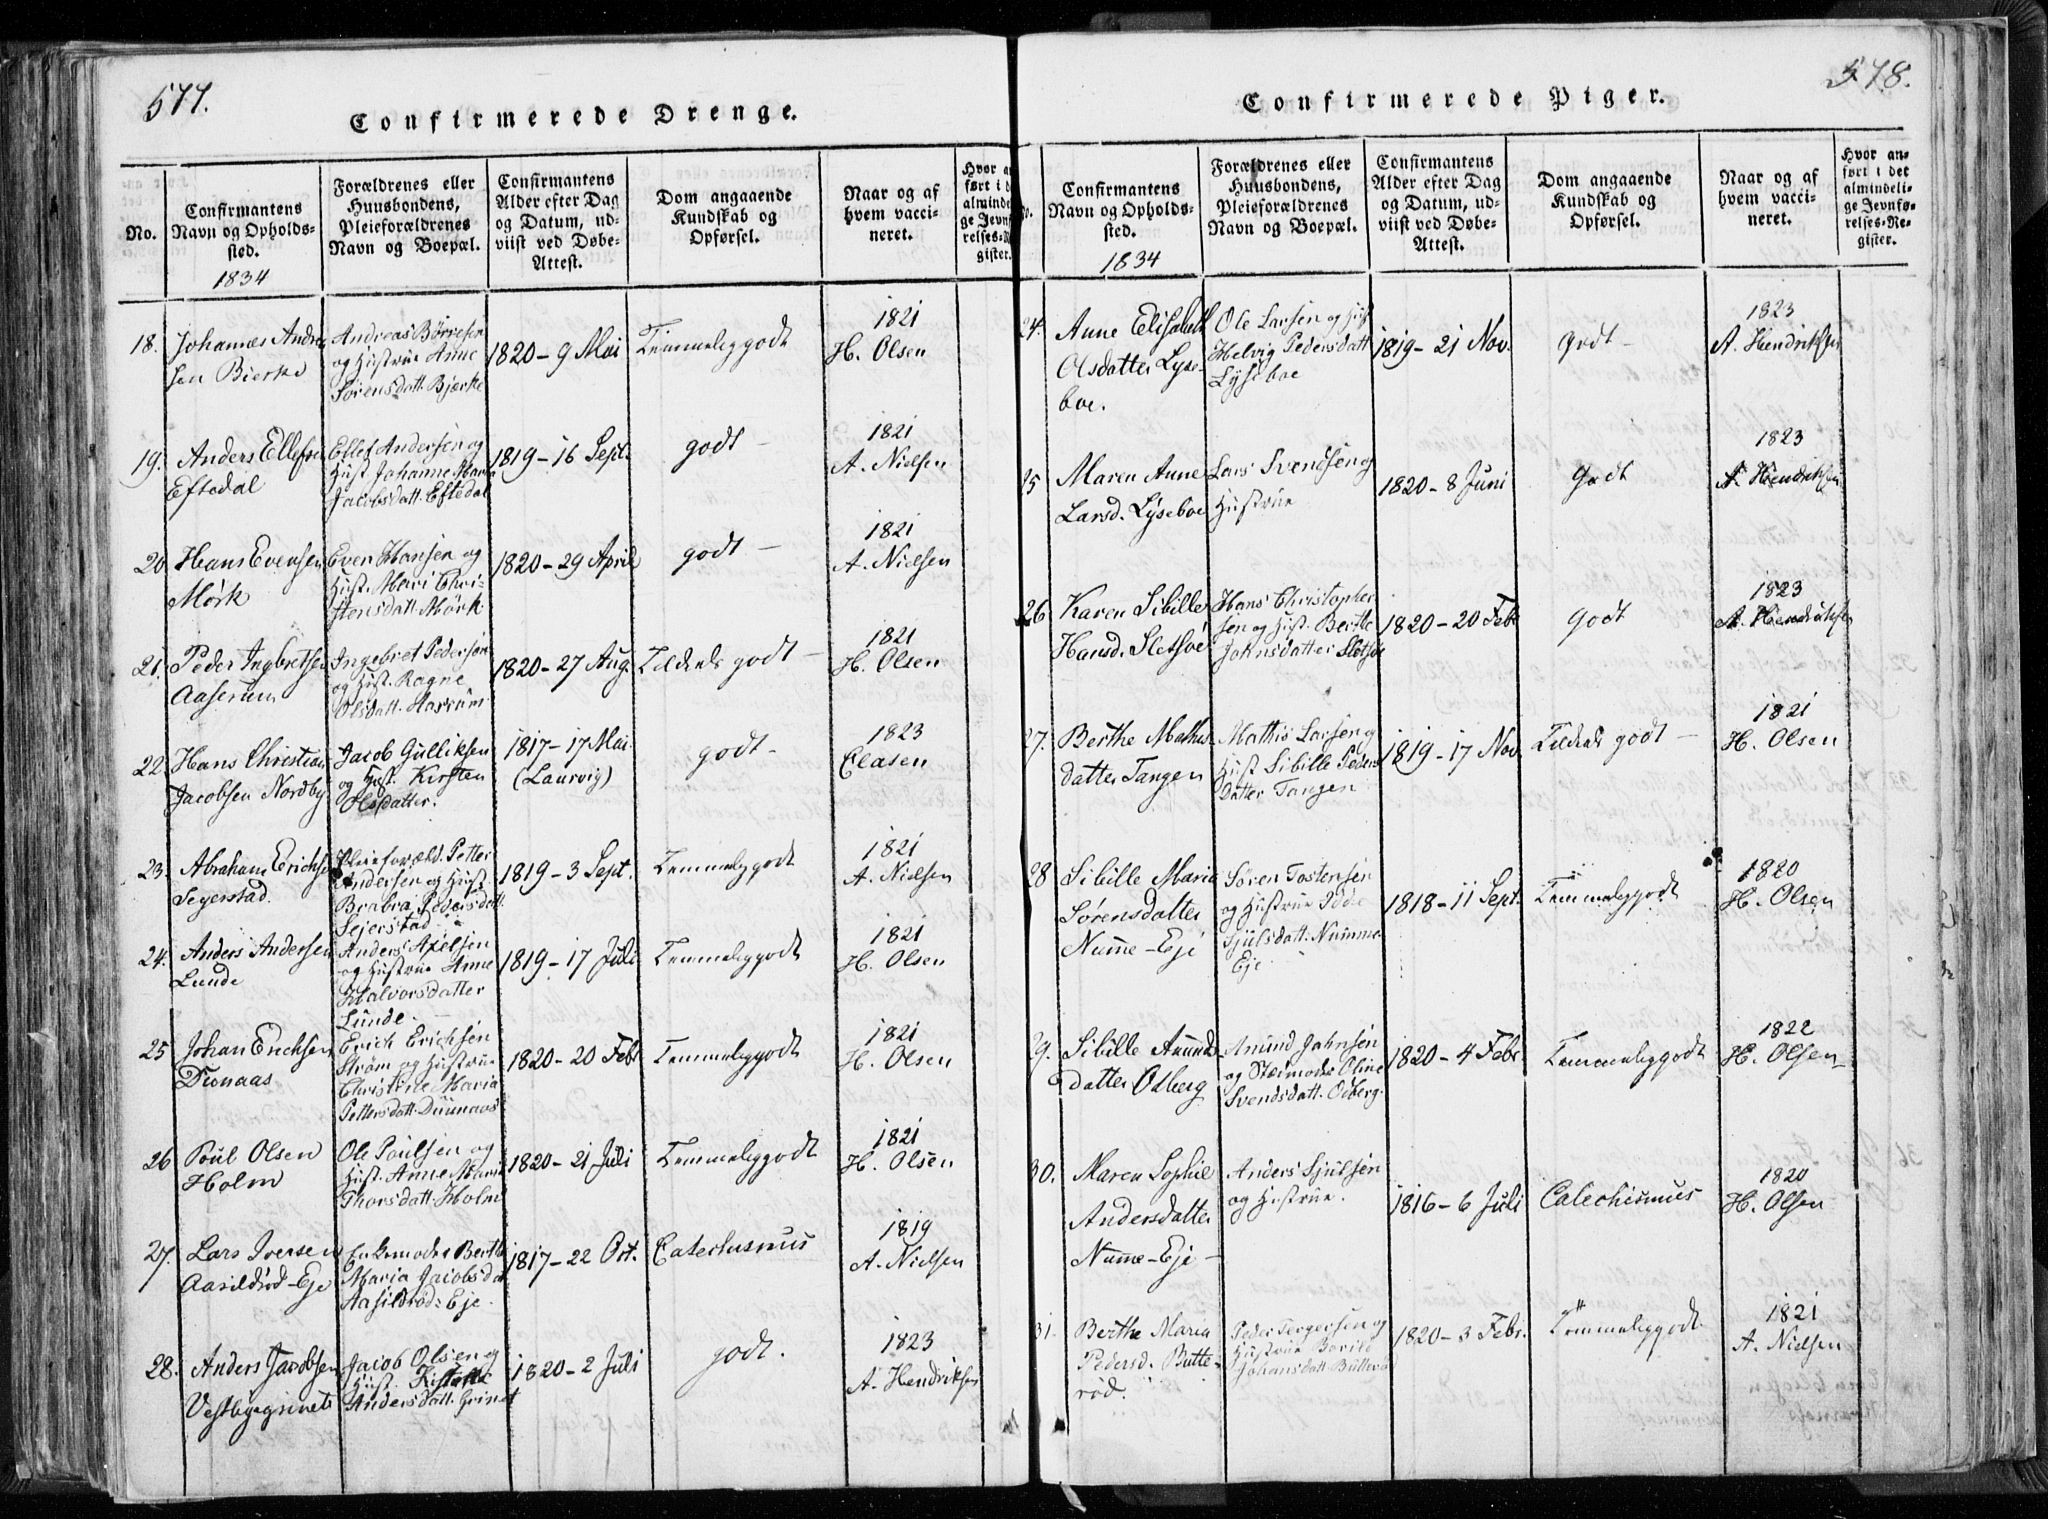 577.
Confirmerede Drenge.
No.
Confirmantens
Navn og Opholds-
sted.
1834
Forældrenes eller
Huusbondens,
Pleieforældrenes
Navn og Boepæl.
Confirmantens
Alder efter Dag
og Datum, ud-
viist ved Døbe-
Attest.
Dom angaaende
Kundskab og
Opførsel.
Naar og af
hvem vacci-
neret.
18.
Johannes Andre
sen Bierke
Andreas Børresen
og Hustrue Anne
Sørensdatt. Bjerke
1820 - 9 Mai
Temmeliggodt
1821
H. Olsen
19.
Anders Ellefse
Eftedal
Ellef Andersen og
Hust. Johanne Maria
Jacobsdatt. Eftedal
1819 - 16 Sept.
godt -
1821
A. Nielsen
20
Hans Evensen
Mørk
Even Hansen og
Hust. Mari Chri-
stensdatt. Mørk.
1820 - 29 April
godt -
1821
A. Nielsen
21.
Peder Ingbretsen
Aaserum
Ingebret Pedersen
og Hust. Ragne
Olsdatt. Aasrum
1820 - 27 Aug.
Tildeels godt -
1821
H. Olsen
22.
Hans Christian
Jacobsen Nordby
Jacob Gulliksen
og Hust. Kirsten
Olsdatter.
1817 - 17 Mai.
(Laurvig)
godt -
1823
Clasen
23.
Abraham Erichse
Segerstad.
Pleieforæld. Petter
Andersen og Hust.
Brabra Pedersdatt.
Sejerstad.
1819 - 3 Sept.
Temmeliggodt
1821
A. Nielsen
24.
Anders Andersen
Lunde
Anders Axelsen
og Hustrue Anne
Halvorsdatter
Lunde. -
1819 - 17 Juli
Temmeliggodt
1821
H. Olsen
25
Johan Erichsen
Dunaas
Erich Erichsen
Strøm og Hustrue
Christine Maria
Pettersdatt. Duunaas
1820 - 20 Febr
Temmeliggodt
1821
H. Olsen
26
Poul Olsen
Holm
Ole Poulsen og
Hust. Anne Marie
Thorsdatt. Holm
1820 - 21 Juli
Temmeliggodt
1821
H. Olsen
27.
Lars Iversen
Aasildrød-Eje
Enkemodr. Berthe
Maria Jacobsda
Aasildrød-Eje.
1817 - 22 Oct.
Catechismus
1819
A. Nielsen
28.
Anders Jacobsen
Vestbygrinets
Jacob Olsen og
Hust.
Andersdatt. Grinet
1820 - 2 Juli
godt.
1823
A. Hendriksen
578.
Confirmerede Piger.
Confirmantens
Navn og Opholds-
sted.
1834
Forældrenes eller
Huusbondens,
Pleieforældrenes
Navn og Boepæl.
Confirmantens
Alder efter Dag
og Datum, ud-
viist ved Døbe-
Attest.
Dom angaaende
Kundskab og
Opførsel.
Naar og af
hvem vacci-
neret.
Hvor an-
ført i det
almindeli-
ge Jevnfø-
relses-Re-
gister.
24.
Anne Elisabeth
Olsdatter Lyse-
boe.
Ole Larsen og Hust
Helvig Pedersdatt
Lyseboe
1819 - 21 Nov.
Godt -
1823
A. Hendriksen
25
Maren Anne
Larsd. Lyseboe
Lars Svendsen og
Hustrue
1820 - 8 Juni
Godt
1823
A. Hendriksen
26
Karen Sibille
Hansd. Sletsøe
Hans Christopher
sen og Hust. Berthe
Johnsdatter Sletsøe
1820 - 20 Febr
Godt
1823
A. Hendriksen
27.
Berthe Mathis
datter Tangen
Mathis Larsen og
Hust Sibille Peders
datter Tangen
1819 - 17 Nov.
Tildeels godt -
1821
H. Olsen
28
Sibille Maria
Sørensdatter
Numme-Eje
Søren Tostensen
og Hustrue Idde
Sjulsdatt. Numme-
Eje.
1818 - 11 Sept.
Temmeliggodt
1820
H. Olsen
29.
Sibille Amund
datter Odberg
Amund Jahnsen
og Steermoder Oline
Svendsdatt. Odberg.
1820 - 4 Febr
Temmeliggodt
1822
H. Olsen
30.
Maren Sophie
Andersdatter
Numme-Eje -
Anders Sjulsen
og Hustrue.
1816 - 6 Juli
Catechismus
1820
H. Olsen
31.
Berthe Maria
Pedersd. Butte-
rød.
Peder Tergersen og
Hustrue Borild
Johansdatt. Butterø
1820 - 3 Febr.
Temmeliggodt
1821
A. Nielsen